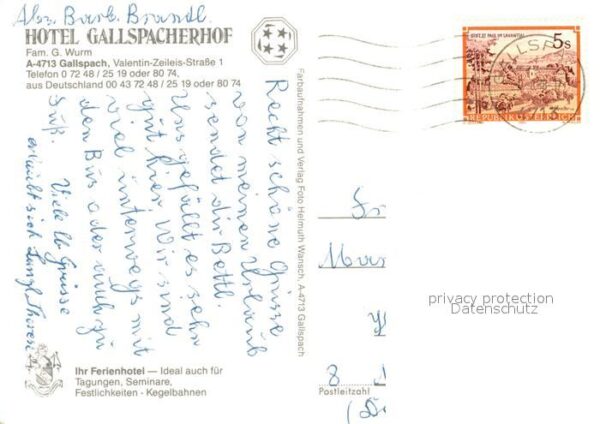 Abs. Barb. Brandl.
HOTEL GALLSPACHERHOF
Fam. G. Wurm
A-4713 Gallspach, Valentin-Zeileis-Straße 1
Telefon 0 72 48 / 25 19 oder 80 74,
aus Deutschland 00 43 72 48 / 25 19 oder 80 74
Recht schöne Grüsse
von meinen Urlaub
sendet dir Bettl.
Uns gefällt es sehr
gut hier Wir sind
viel unterwegs mit
den Bus oder auch zu
Fuß. Viele lb Grüsse
erlaubt sich Therese
Ihr Ferienhotel — Ideal auch für
Tagungen, Seminare,
Festlichkeiten - Kegelbahnen
Farbaufnahmen und Verlag Foto Helmuth Wansch, A-4713 Gallspach
5 S
REPUBLIK ÖSTERREICH
8
Postleitzahl
privacy protection
Datenschutz